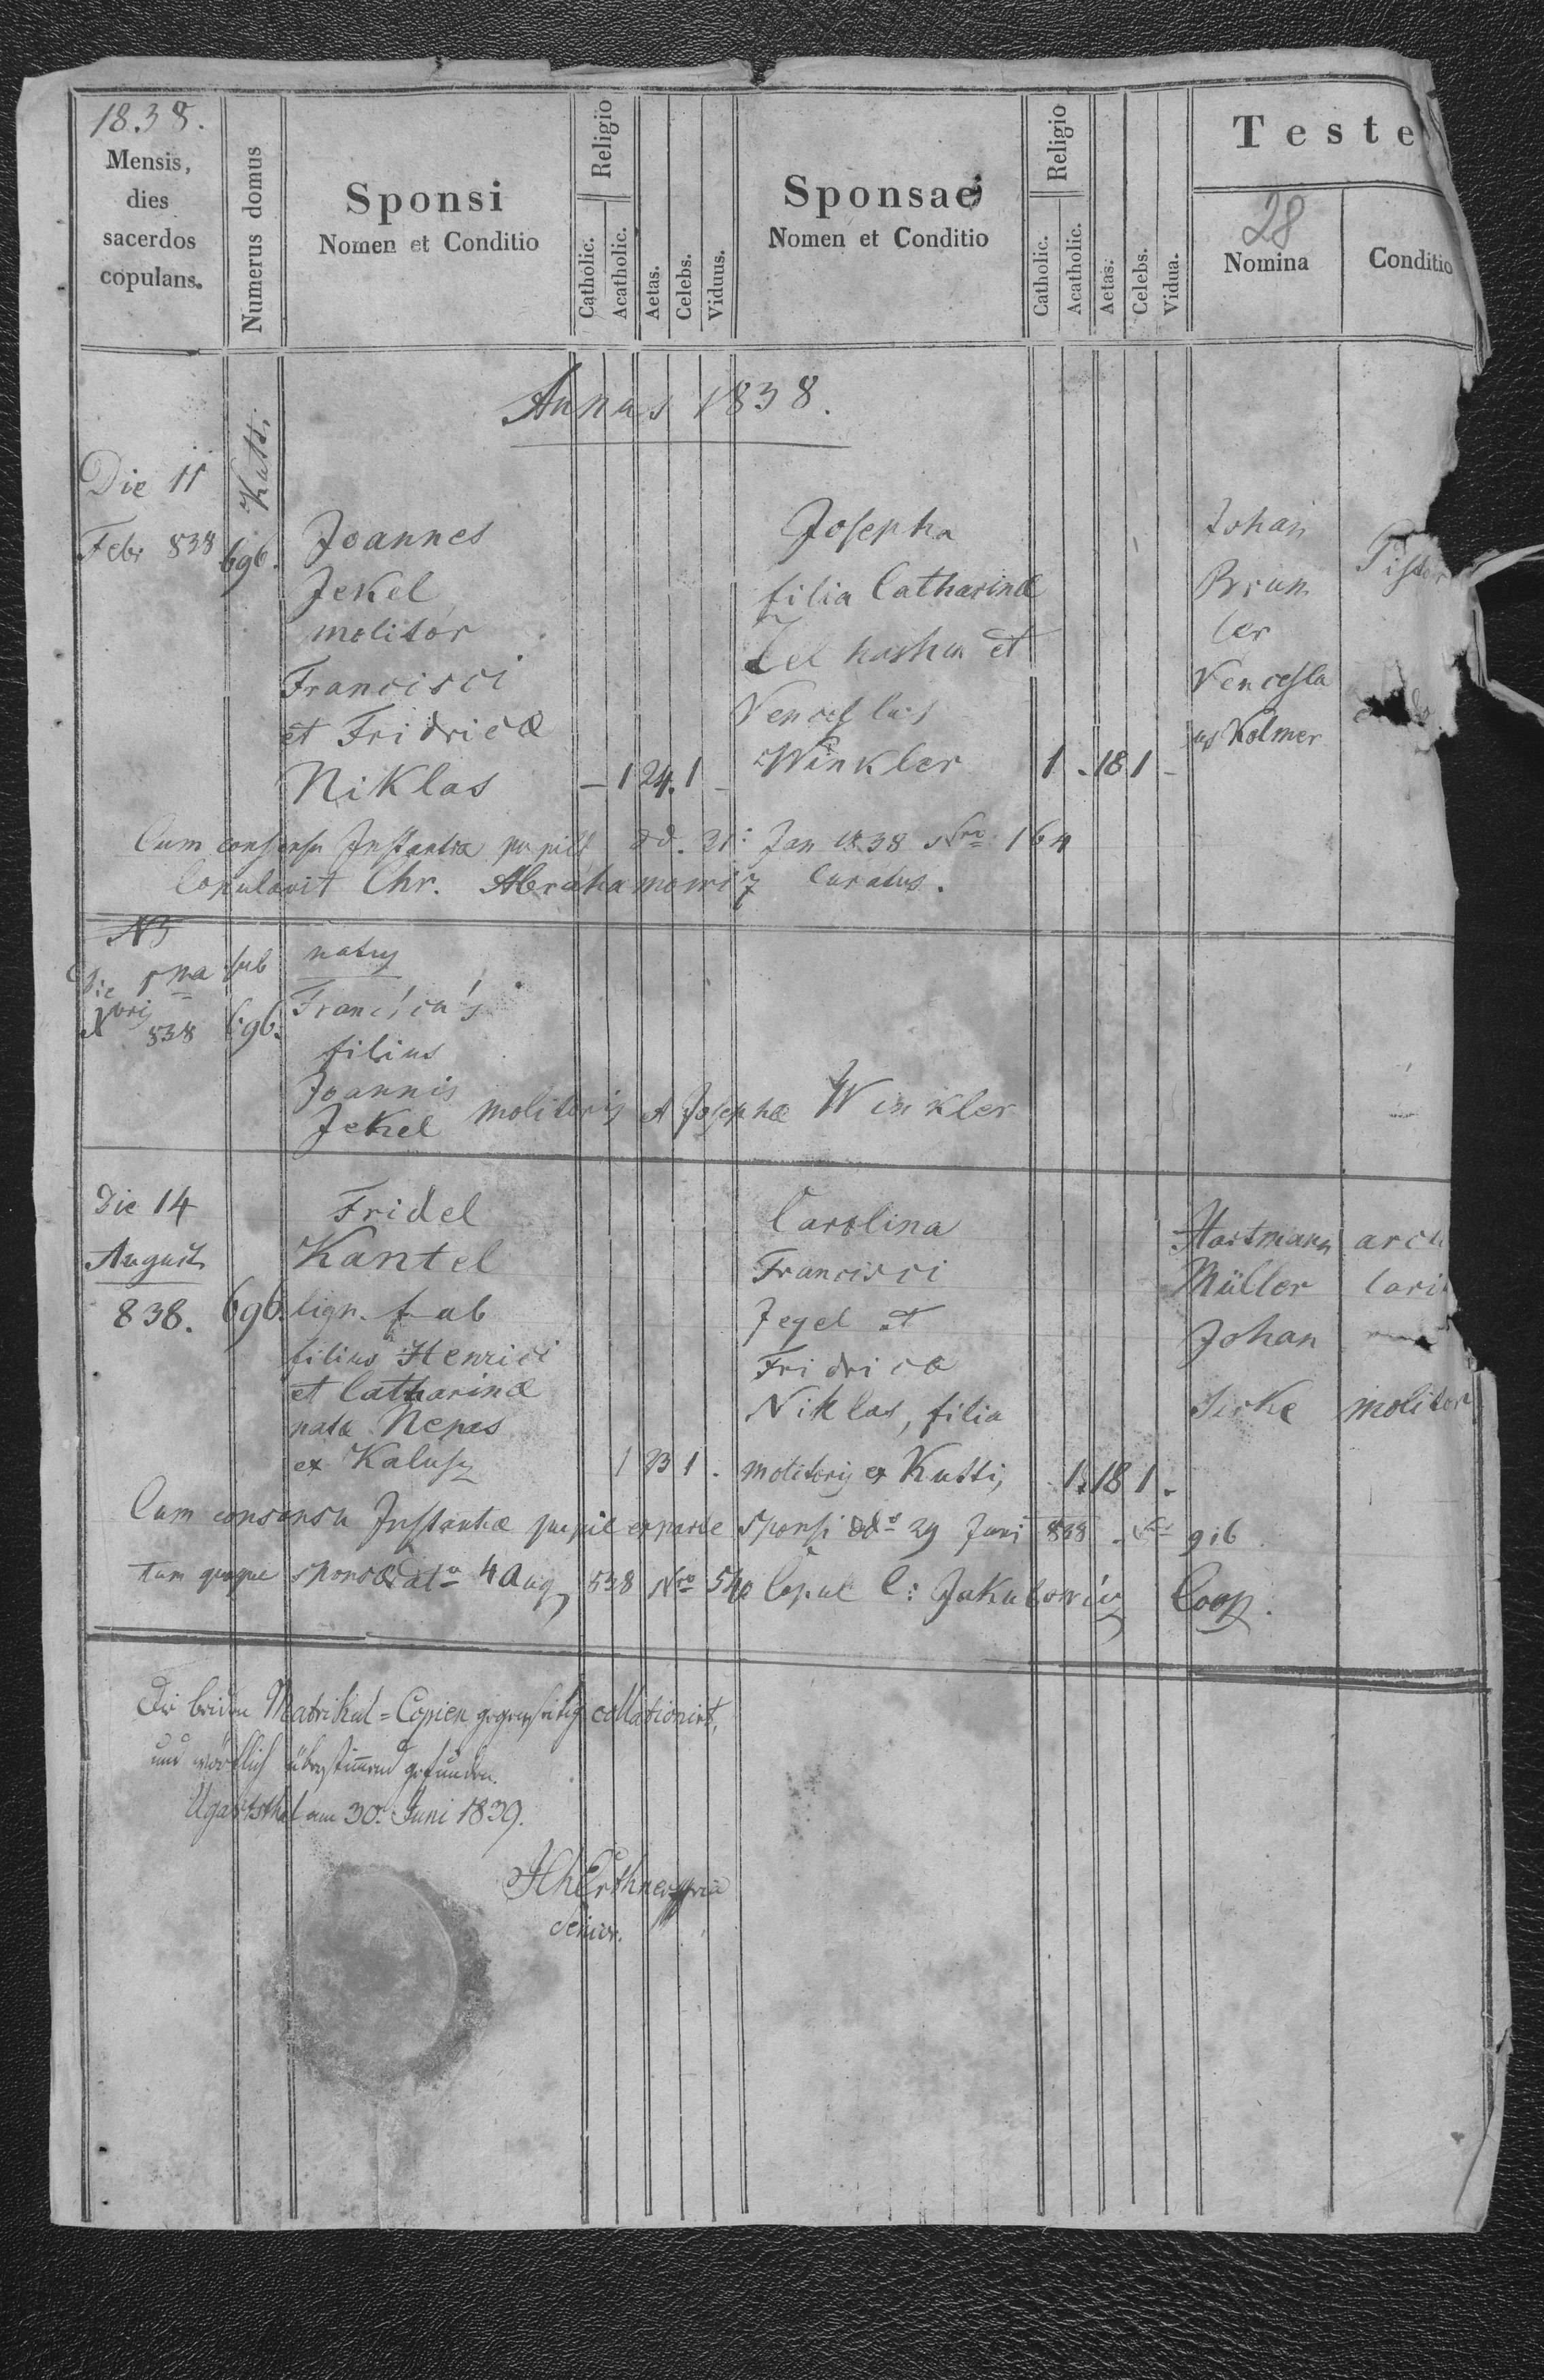 1838.
Mensis,
dies
sacerdos
copulans.
Numerus domus
Sponsi
Nomen et Conditio
Religio
Catholic.
Acatholic.
Aetas.
Celebs.
Viduus.
Sponsae
Nomen et Conditio
Religio
Catholic.
Acatholic.
Aetas.
Celebs.
Vidua.
Teste
28
Nomina
Conditio
Annus 1838.
Die 11
Febr 838
696.
Joannes
Jekel
molitor
Francisci
et Fridricæ
Niklas
– 1 24. 1 –
Josepha
filia Catharinæ
et
Venceslai
Winkler
1 - 18 1 -
Johan
Brun
ler
Vencesla
us Kolmer
Pister
Cum consensu Instantiæ pupill dd. 31: Jan 1838 Nro 164
Copulavit Chr. Abrahamowicz Curatus.
NB
Die 1ma
Xbris
838
sub
696.
natus
Franciscus
filius
Joannis
Jekel molitoris et Josephæ Winkler
Die 14
August
838.
696.
Fridel
Kantel
lign. fab
filius Henrici
et Catharinæ
natæ Nepas
ex Kalusz
1 23 1 .
Carolina
Francisci
Jegel et
Fridrica
Niklas, filia
molitoris ex Kutti,
1. 18 1 -
Hartmann
Müller
Johan
Jerke
molitor
Cum consensu Instantiæ pupil ex parte Sponsi ddo 29 Juni 838 916
tum quoque sponsæ dato 4 Aug 838 Nro 540 Copul C: Jakubowicz Coop.
Die beiden Matrikul=Copien gegenseitig collationirt,
und wörtlich übereinstimmend gefunden.
Ugartsthal am 30. Juni 1839.
Senior.